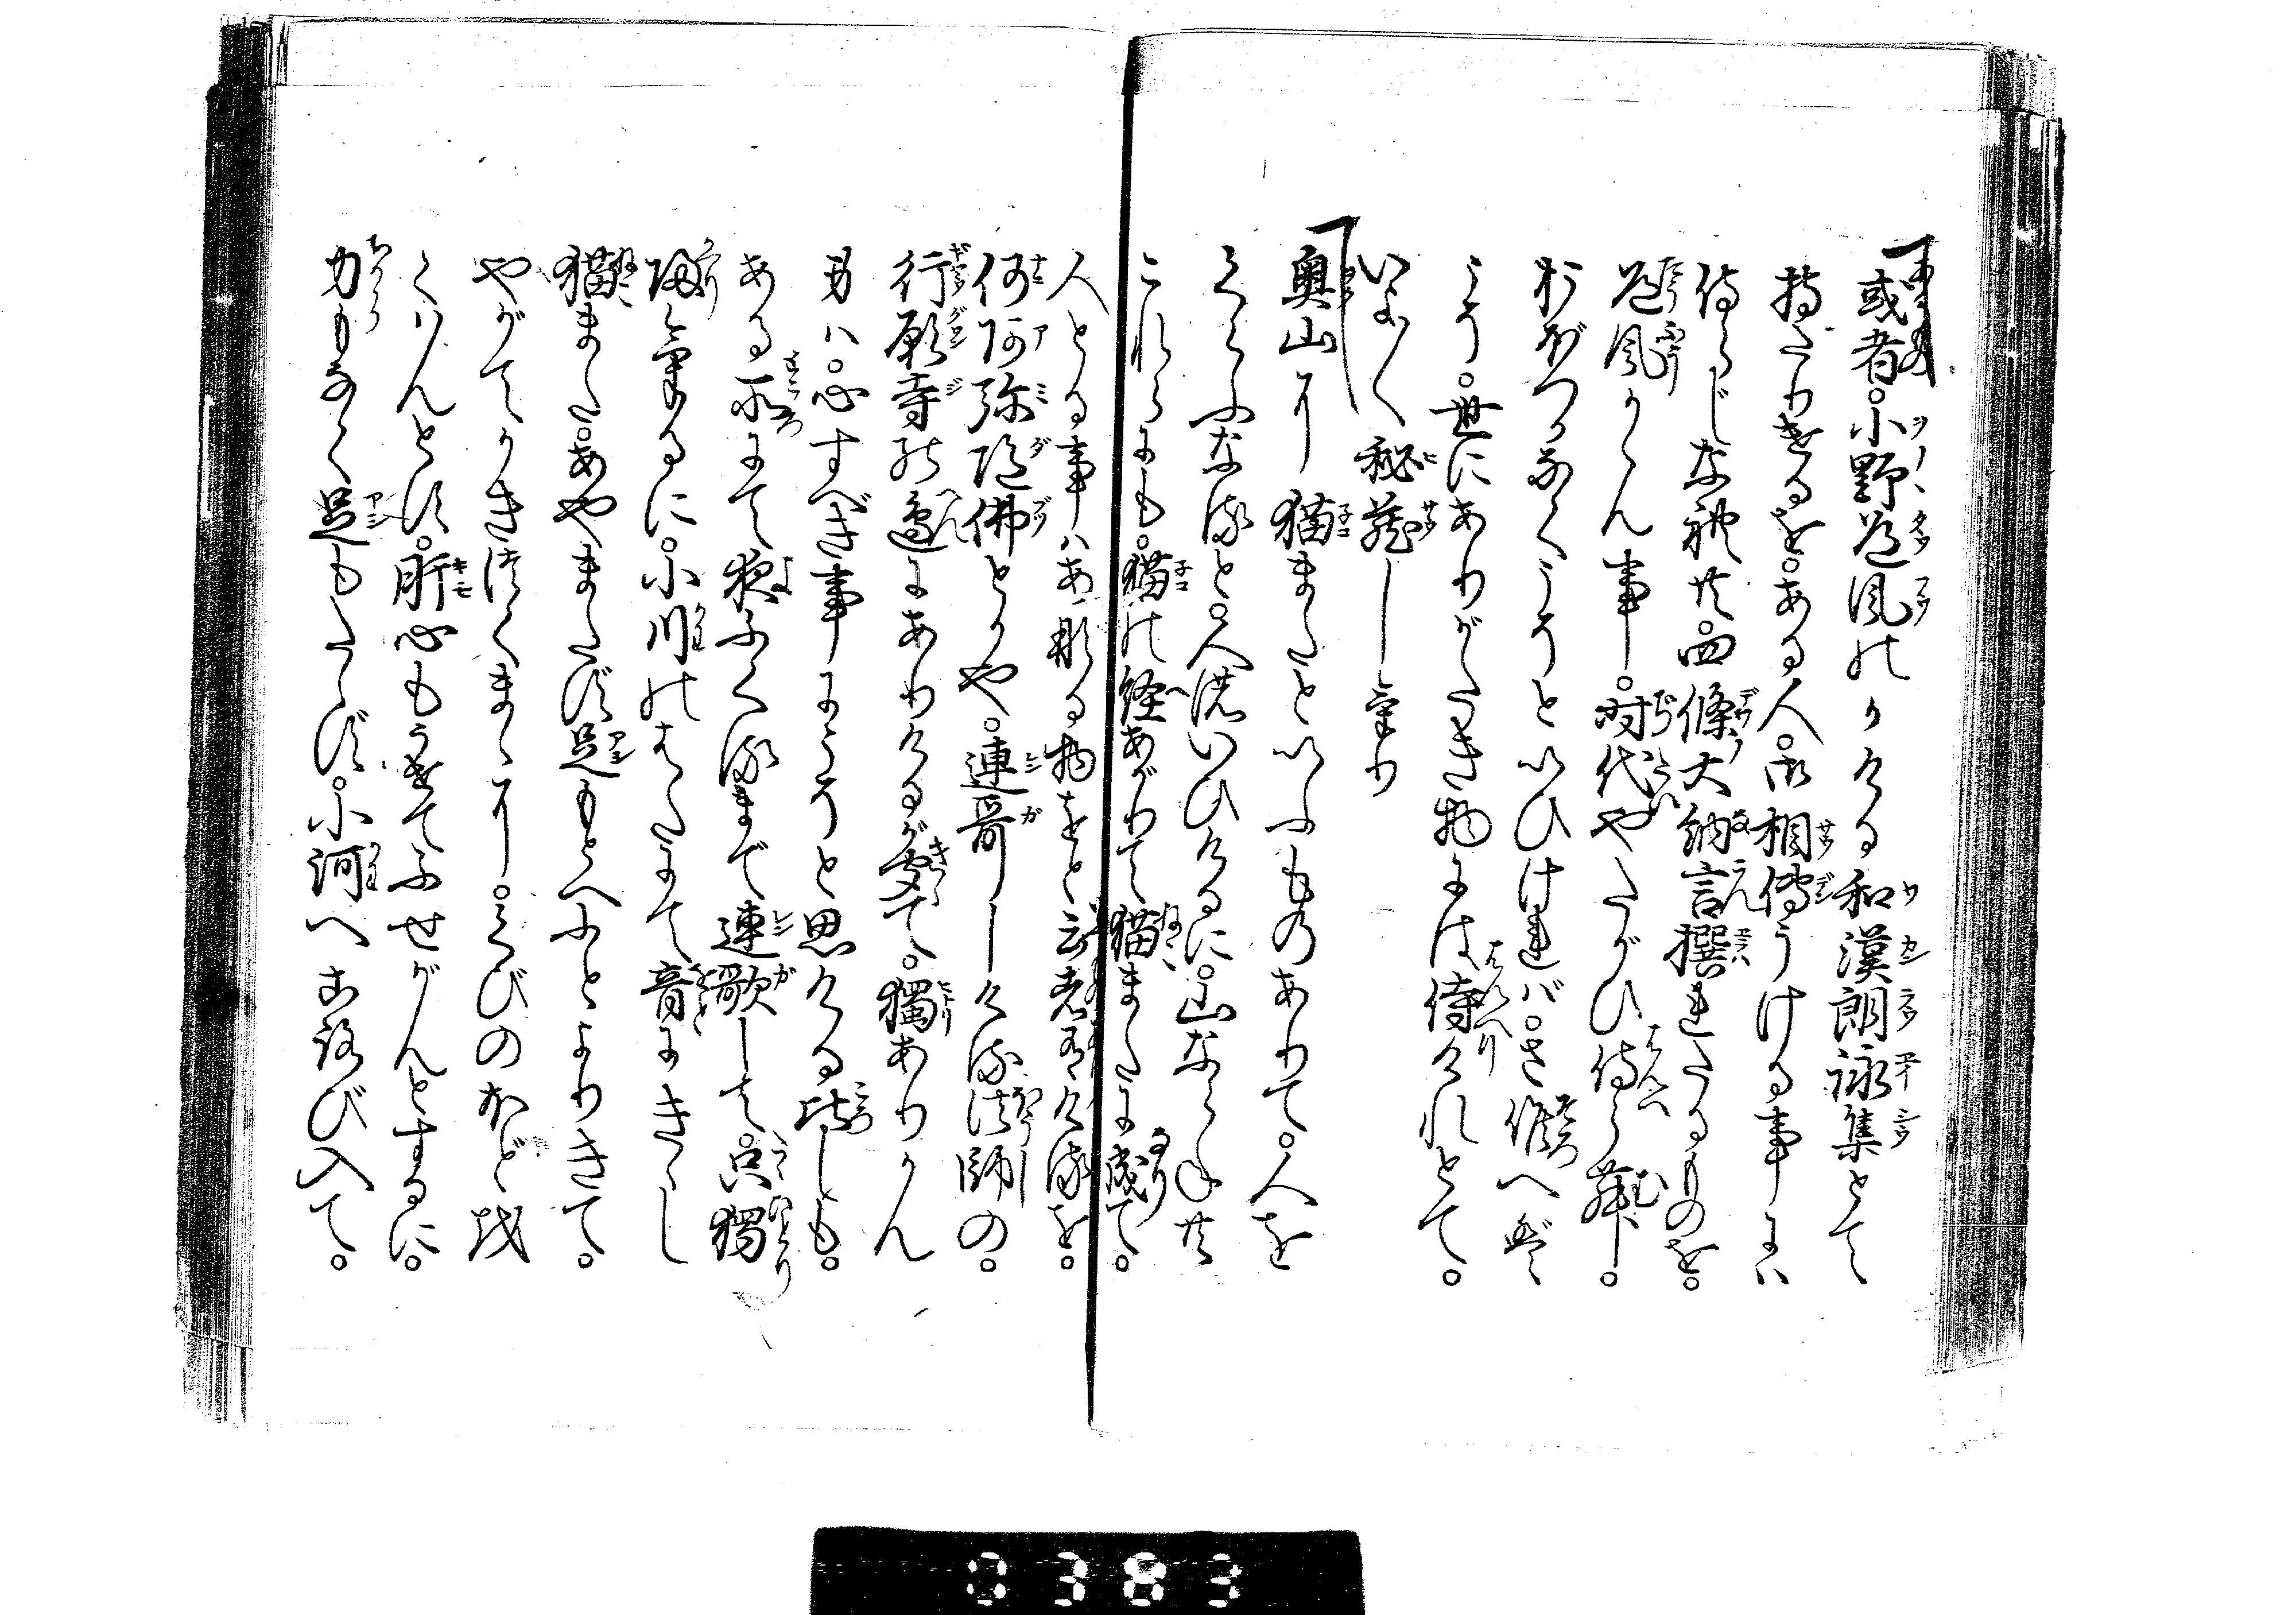 一或者。小野道風のかける和漢朗詠集とて
持たりけるを。ある人。御相傳うける事には
侍らじなれ共。四條大納言撰れたるものを。
道風かゝん事。時代やたがひ侍らん。
おぼつかなくこそといひければ。さ候へば
こそ。世にありがたき物には侍けれとて。
いよ〱秘蔵しけり
一奥山に猫またといふものありて。人を
くらふなると。人のいひけるに。山ならねども
これらにも。猫の経あがりて猫またに成て。
人とる事はあなる物をと云者有けるを。
何阿弥陀佛とかや。連哥しける法師の。
行願寺の邊にありけるが聞て。獨ありかん
身は。心すべき事にこそと思ける比しも。
ある所にて夜ふくるまで連歌して。只獨
帰けるに。小川のはたにて音にきゝし
猫また。あやまたず足もとへふとよりきて。
やがてかきつくまゝに。くびのほどを
くはんとす。肝心もうせてふせがんとするに。
力もなく足もたゝず。小河へころび入て。
0383